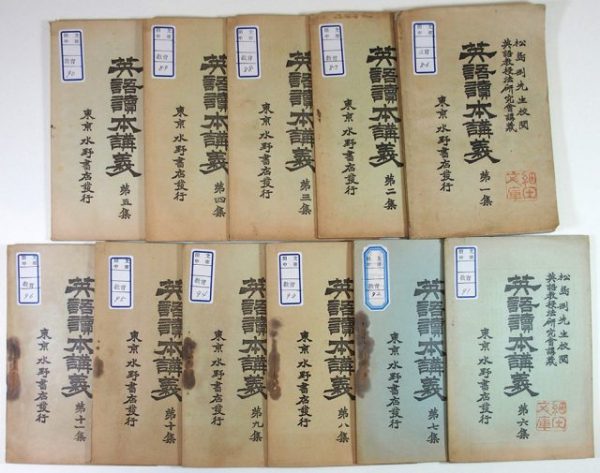 松島剛先生校閲
英語教授法研究會講義
英語讀本講義 第一集
東京 水野書店發行
細田文庫
教育
86
英語讀本講義 第二集
東京 水野書店發行
教育
87
英語讀本講義 第三集
東京 水野書店發行
教育
88
英語讀本講義 第四集
東京 水野書店發行
教育
89
英語讀本講義 第五集
東京 水野書店發行
教育
90
松島剛先生校閲
英語教授法研究會講義
英語讀本講義 第六集
東京 水野書店發行
細田文庫
教育
91
英語讀本講義 第七集
東京 水野書店發行
教育
92
英語讀本講義 第八集
東京 水野書店發行
教育
93
英語讀本講義 第九集
東京 水野書店發行
教育
94
英語讀本講義 第十集
東京 水野書店發行
教育
95
英語讀本講義 第十一集
東京 水野書店發行
教育
96